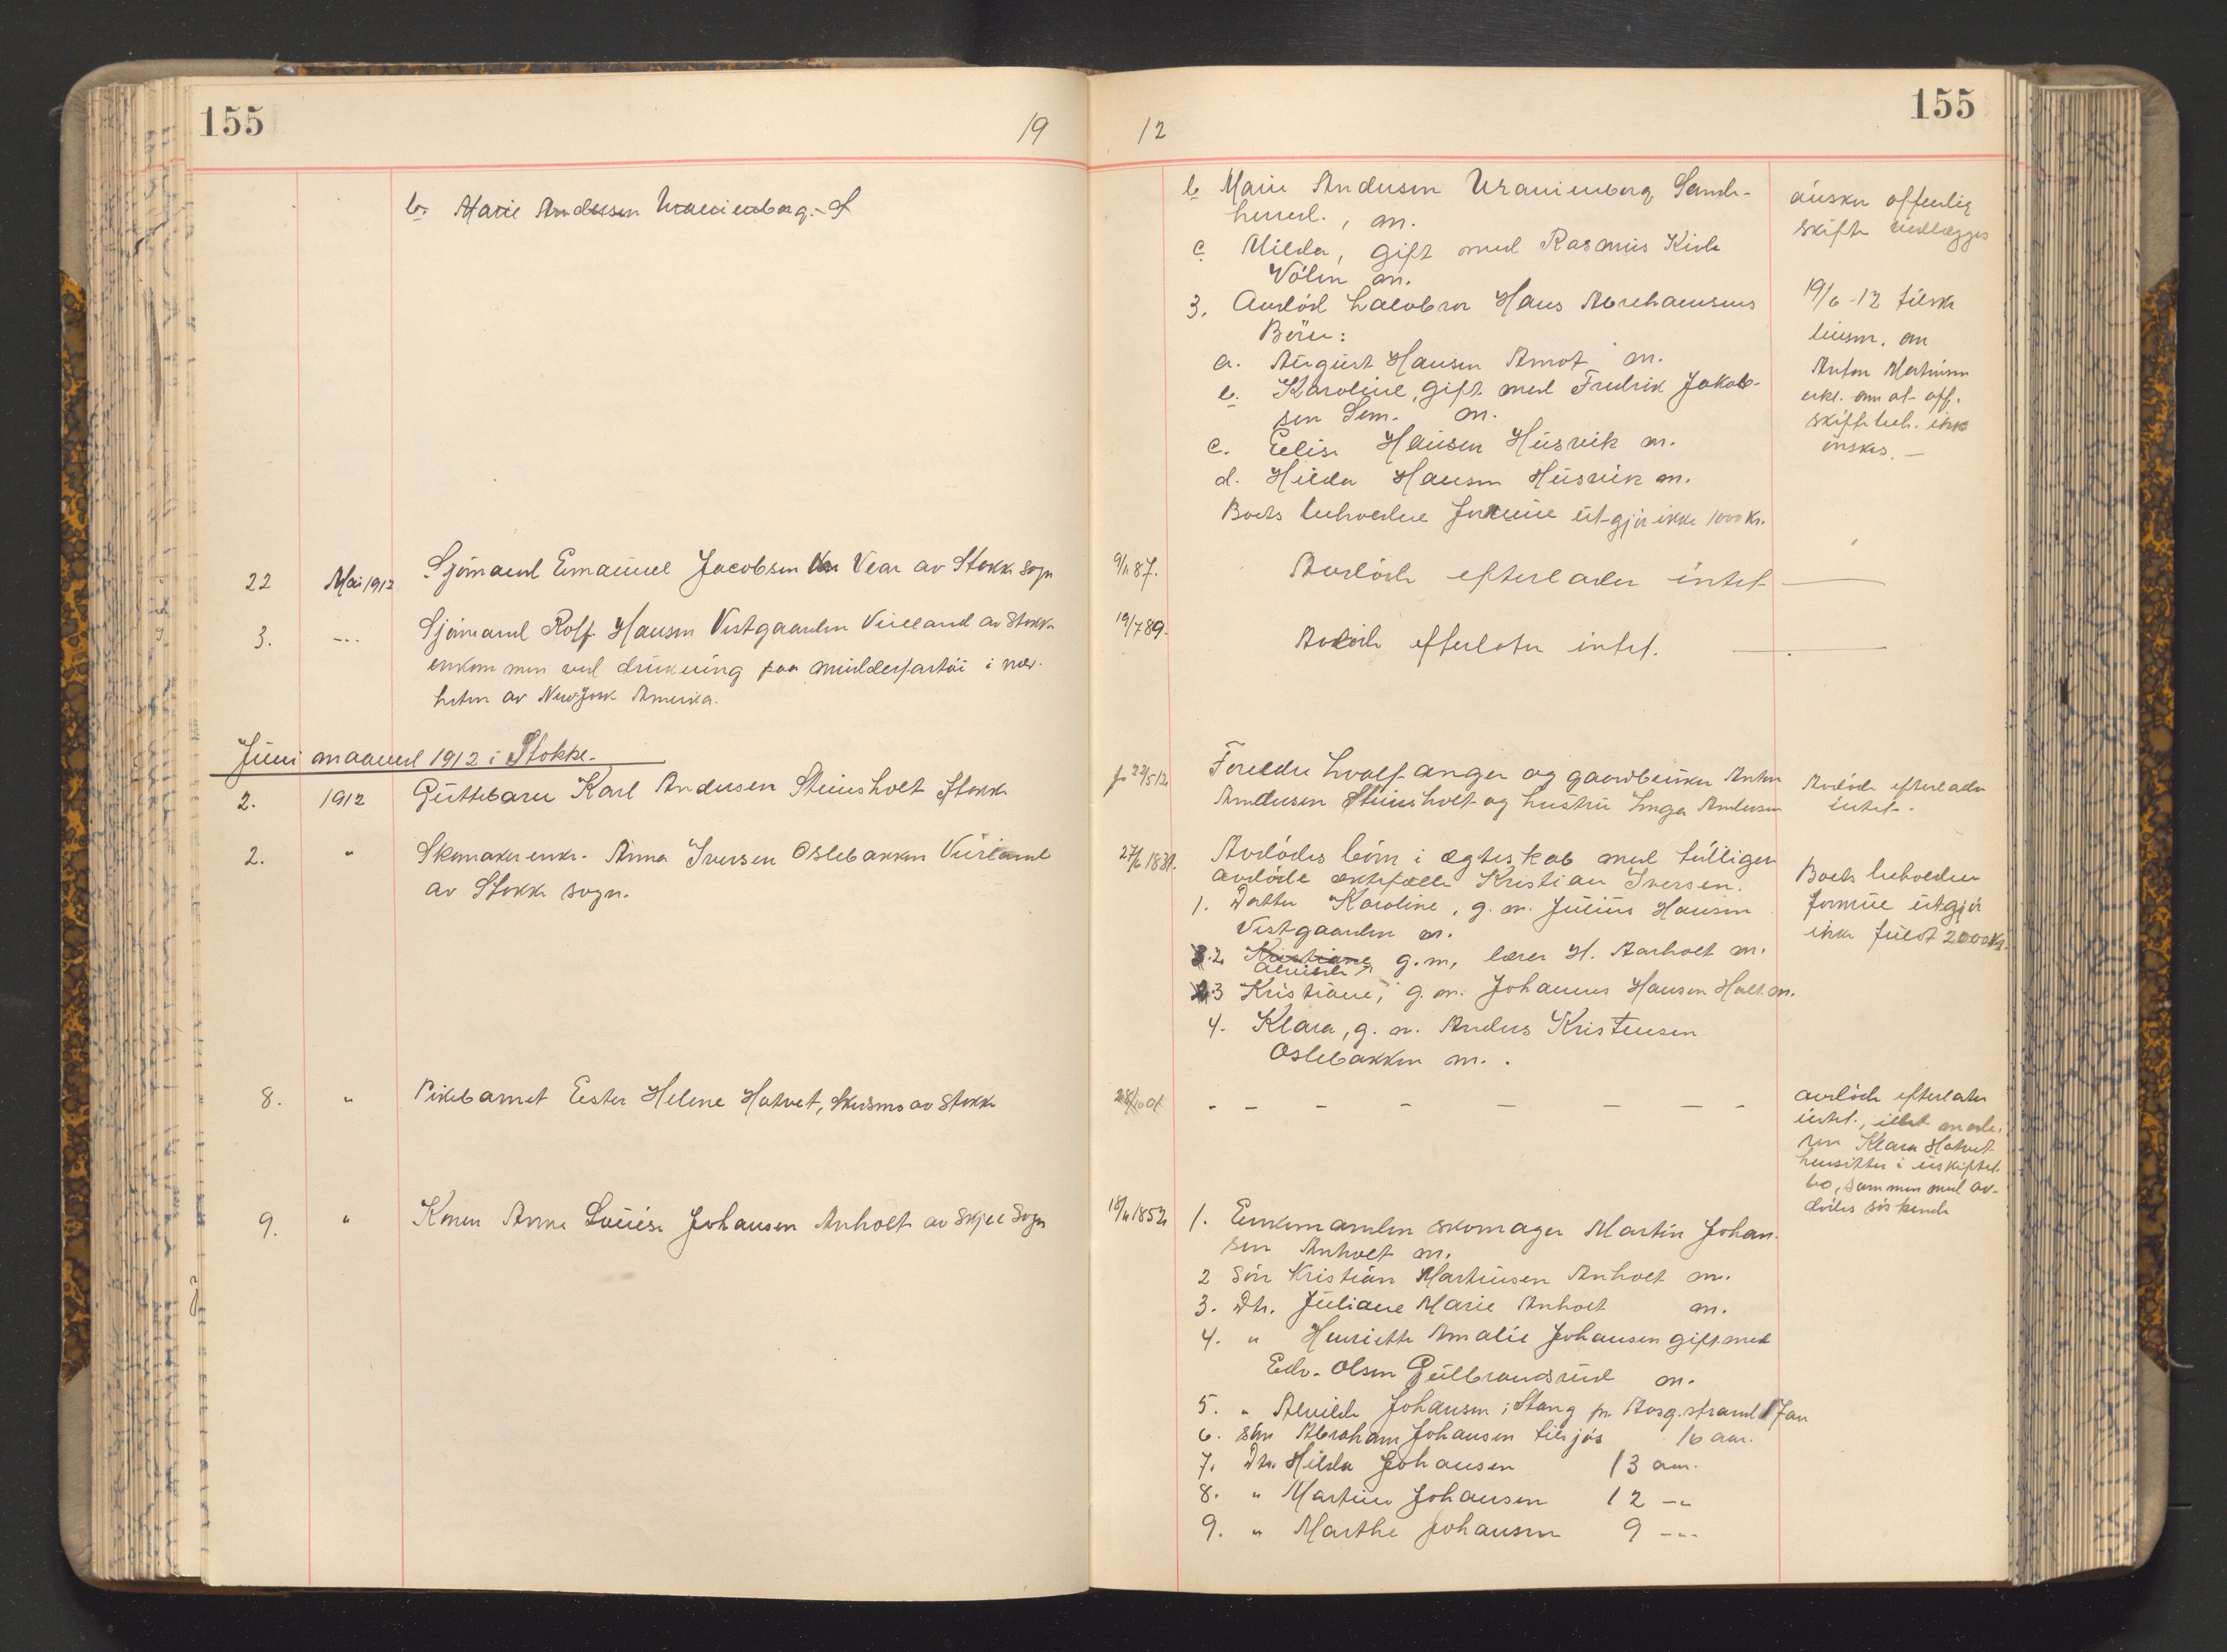 155
19
b. Marie Andersen Uranienborg.
22 Mai 1912 Sjömand Emanuel Jacobsen Vear av Stokke sogn
3. -"- Sjömand Rolf Hansen Vestgaarden Viveland av Stokke
enkommen ved drukning paa mudderfartöi i nær-
heten av New York Amerika.
Juni maaned 1912 i Stokke.
2. 1912 Guttebarn Karl Andersen Steinsholt Stokke
2. " Skomaker enke. Anna Iversen Oslebakken
av Stokke sogn.
8. " Pikebarnet Ester Helene Hotvet, av Stokke
9. " Konen Anna Lovise Johansen Anholt av Skjee Sogn
12
155
b Marie Andersen Uranienborg Sande-
herred., m.
c Hilda, gift med Rasmus
m.
3. Avdöd halvbror Hans Abrahamsens
Börn:
a. August Hansen Amot m.
b. Karoline, gift med Fredrik Jakob-
sen Sem. m.
c. Elise Hansen Husvik m.
d. Hilda Hansen Husvik m.
Boets beholdne Formue utgjör ikke 1000 Kr.
önsker offentlig
skifte
19/6-12 tilsk
lensm. om
Anton Martinsen
erkl. om at off.
skiftebeh. ikke
önskes.
9/1 87. Avdöde efterlader intet
19/7 89. Avdöde efterlater intet.
f 22/5 12 Foreldre hvalfanger og gaardbruker Anton
Andersen Steinsholt og hustru Inga Andersen
Avdöde efterlader
intet.
27/6 1831. Avdödes börn i ægteskab med tidligere
avdöde ektefælle Kristian Iversen.
1. Datter Karoline, g. m. Julius Hansen
Vestgaarden m.
2 Kristiane g. m. lærer H. Aarholt m.
3 Kristiane, g. m. Johannes Hansen Holt m.
4. Klara, g. m. Anders Kristensen
Oslebakken m.
Boets beholdne
formue utgjör
ikke fuldt 2000 Kr.
28/10 01 - - - - - - - -
avdöde efterlater
intet, idet mode-
ren Klara Hotvet
hensitter i uskiftet
bo, sammen med av-
dödes söskende
18/4 1852 1. Enkemanden skomager Martin Johan-
sen Anholt m.
2 Sön Kristian Martinsen Anholt m.
3. Dtr. Juliane Marie Anholt m.
4. " Henriette Amalie Johansen gift med
Edv. Olsen Gulbrandsrud m.
5. " Alvilde Johansen i Stang pr Aasg.strand 17 aar
6. Sön Abraham Johansen tilsjös 16 aar.
7. Dtr. Hilda Johansen 13 aar.
8. " Martine Johansen 12 -"-
9. " Marthe Johansen 9 -"-